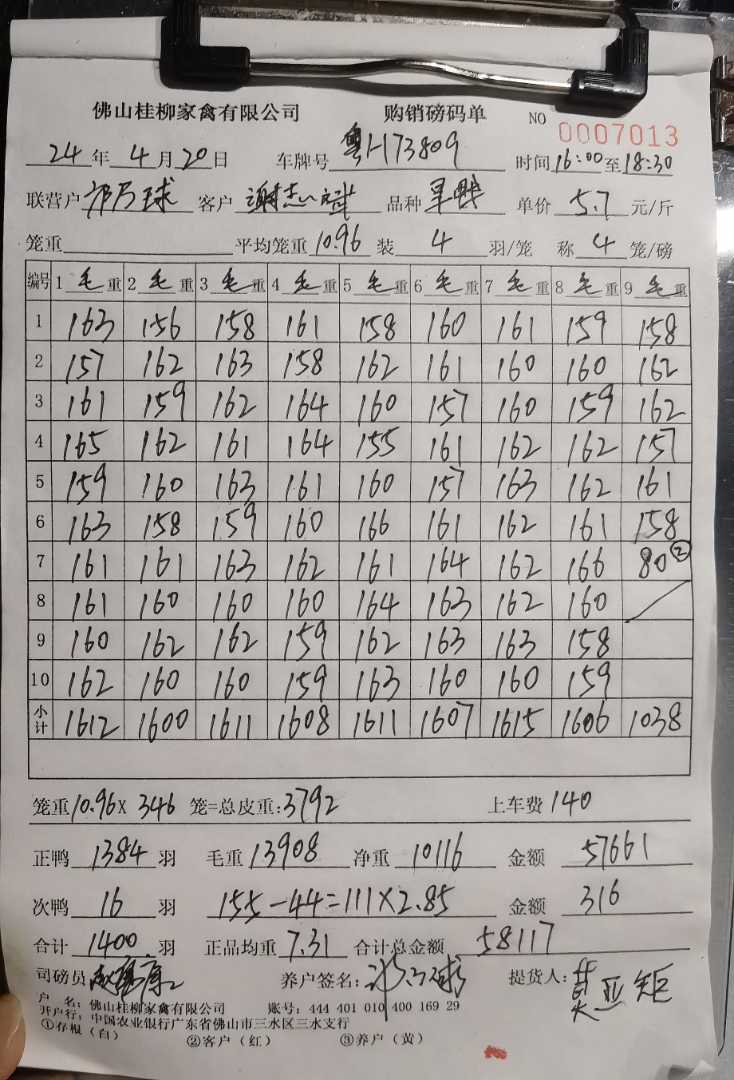 佛山桂柳家禽有限公司 购销磅码单 NO 0007013
24 年 4 月 20 日 车牌号 粤H73809 时间 16:00 至 18:30
联营户 客户 谢志斌 品种 单价 5.7 元/斤
笼重 平均笼重 10.96 装 4 羽/笼 称 4 笼/磅
编号 1 毛 重 2 毛 重 3 毛 重 4 毛 重 5 毛 重 6 毛 重 7 毛 重 8 毛 重 9 毛 重
1 163 156 158 161 158 160 161 159 158
2 157 162 163 158 162 161 160 160 162
3 161 159 162 164 160 157 160 159 162
4 165 162 161 164 155 161 162 162 157
5 159 160 163 161 160 157 163 162 161
6 163 158 159 160 166 161 162 161 158
7 161 161 163 162 161 164 162 166 80 ②
8 161 160 160 160 164 163 162 160
9 160 162 162 159 162 163 163 158
10 162 160 160 159 163 160 160 159
小计 1612 1600 1611 1608 1611 1607 1615 1606 1038
笼重 10.96 × 346 笼=总皮重: 3792 上车费 140
正鸭 1384 羽 毛重 13908 净重 10116 金额 57661
次鸭 16 羽 155-44=111×2.85 金额 316
合计 1400 羽 正品均重 7.31 合计总金额 58117
司磅员 养户签名: 提货人: 莫亚矩
户 名: 佛山桂柳家禽有限公司 账号: 444 401 010 400 169 29
开户行: 中国农业银行广东省佛山市三水区三水支行
①存根（白） ②客户（红） ③养户（黄）